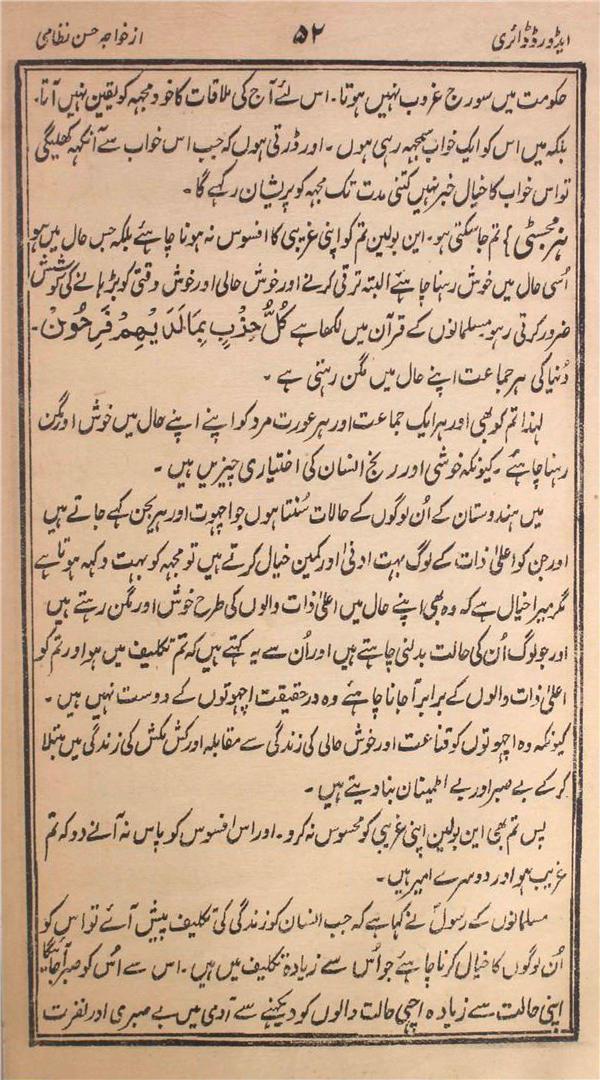 ایڈورڈ ڈائری ۵۲ از خواجہ حسن نظامی
حکومت میں سورج غروب نہیں ہوتا۔ اس لئے آج کی ملاقات کا خود مجہہ کو یقین نہیں آتا۔
بلکہ میں اس کو ایک خواب سمجہہ رہی ہوں۔ اور ڈرتی ہوں کہ جب اس خواب سے آنکہہ کھلیگی
تو اس خواب کا خیال خبر نہیں کتنی مدت تک مجہہ کو پریشان رکہے گا۔
ہز مجسٹی } تم جا سکتی ہو۔ این بولین تم کو اپنی غریبی کا افسوس نہ ہونا چاہئے بلکہ جس حال میں ہو
اُسی حال میں خوش رہنا چاہئے البتہ ترقی کرنے اور خوش حالی اور خوش وقتی کو بڑہانے کی کوشش
ضرور کرتی رہو۔ مسلمانوں کے قرآن میں لکھا ہے کُلُّ حِذْبٍ بِمَا لَدَ یْہِمْ فَرِحُونْ۔
دُنیا کی ہر جماعت اپنے حال میں مگن رہتی ہے ۔
لہٰذا تم کو بھی اور ہر ایک جماعت اور ہر عورت مرد کو اپنے اپنے حال میں خوش اور مگن
رہنا چاہئے ۔ کیونکہ خوشی اور رنج انسان کی اختیاری چیزیں ہیں ۔
میں ہندوستان کے اُن لوگوں کے حالات سُنتا ہوں جو اچہوت اور ہریجن کہے جاتے ہیں
اور جن کو اعلیٰ ذات کے لوگ بہت ادنیٰ اور کمین خیال کرتے ہیں تو مجہہ کو بہت دکہہ ہوتا ہے
مگر میرا خیال ہے کہ وہ بھی اپنے حال میں اعلیٰ ذات والوں کی طرح خوش اور مگن رہتے ہیں
اور جو لوگ اُن کی حالت بدلنی چاہتے ہیں اور اُن سے یہ کہتے ہیں کہ تم تکلیف میں ہو اور تم کو
اعلیٰ ذات والوں کے برابر آجانا چاہئے وہ درحقیقت اچہوتوں کے دوست نہیں ہیں ۔
کیونکہ وہ اچہوتوں کو قناعت اور خوش حالی کی زندگی سے مقابلہ اور کش مکش کی زندگی میں مبتلا
کر کے بے صبر اور بے اطمینان بنا دیتے ہیں ۔
پس تم بھی این بولین اپنی غریبی کو محسوس نہ کرو۔ اور اس افسوس کو پاس نہ آنے دو کہ تم
غریب ہو اور دوسرے امیر ہیں ۔
مسلمانوں کے رسولؐ نے کہا ہے کہ جب انسان کو زندگی کی تکلیف پیش آئے تو اس کو
اُن لوگوں کا خیال کرنا چاہئے جو اُس سے زیادہ تکلیف میں ہیں ۔ اس سے اُس کو صبر آجائیگا
اپنی حالت سے زیادہ اچھی حالت والوں کو دیکہنے سے آدمی میں بے صبری اور نفرت